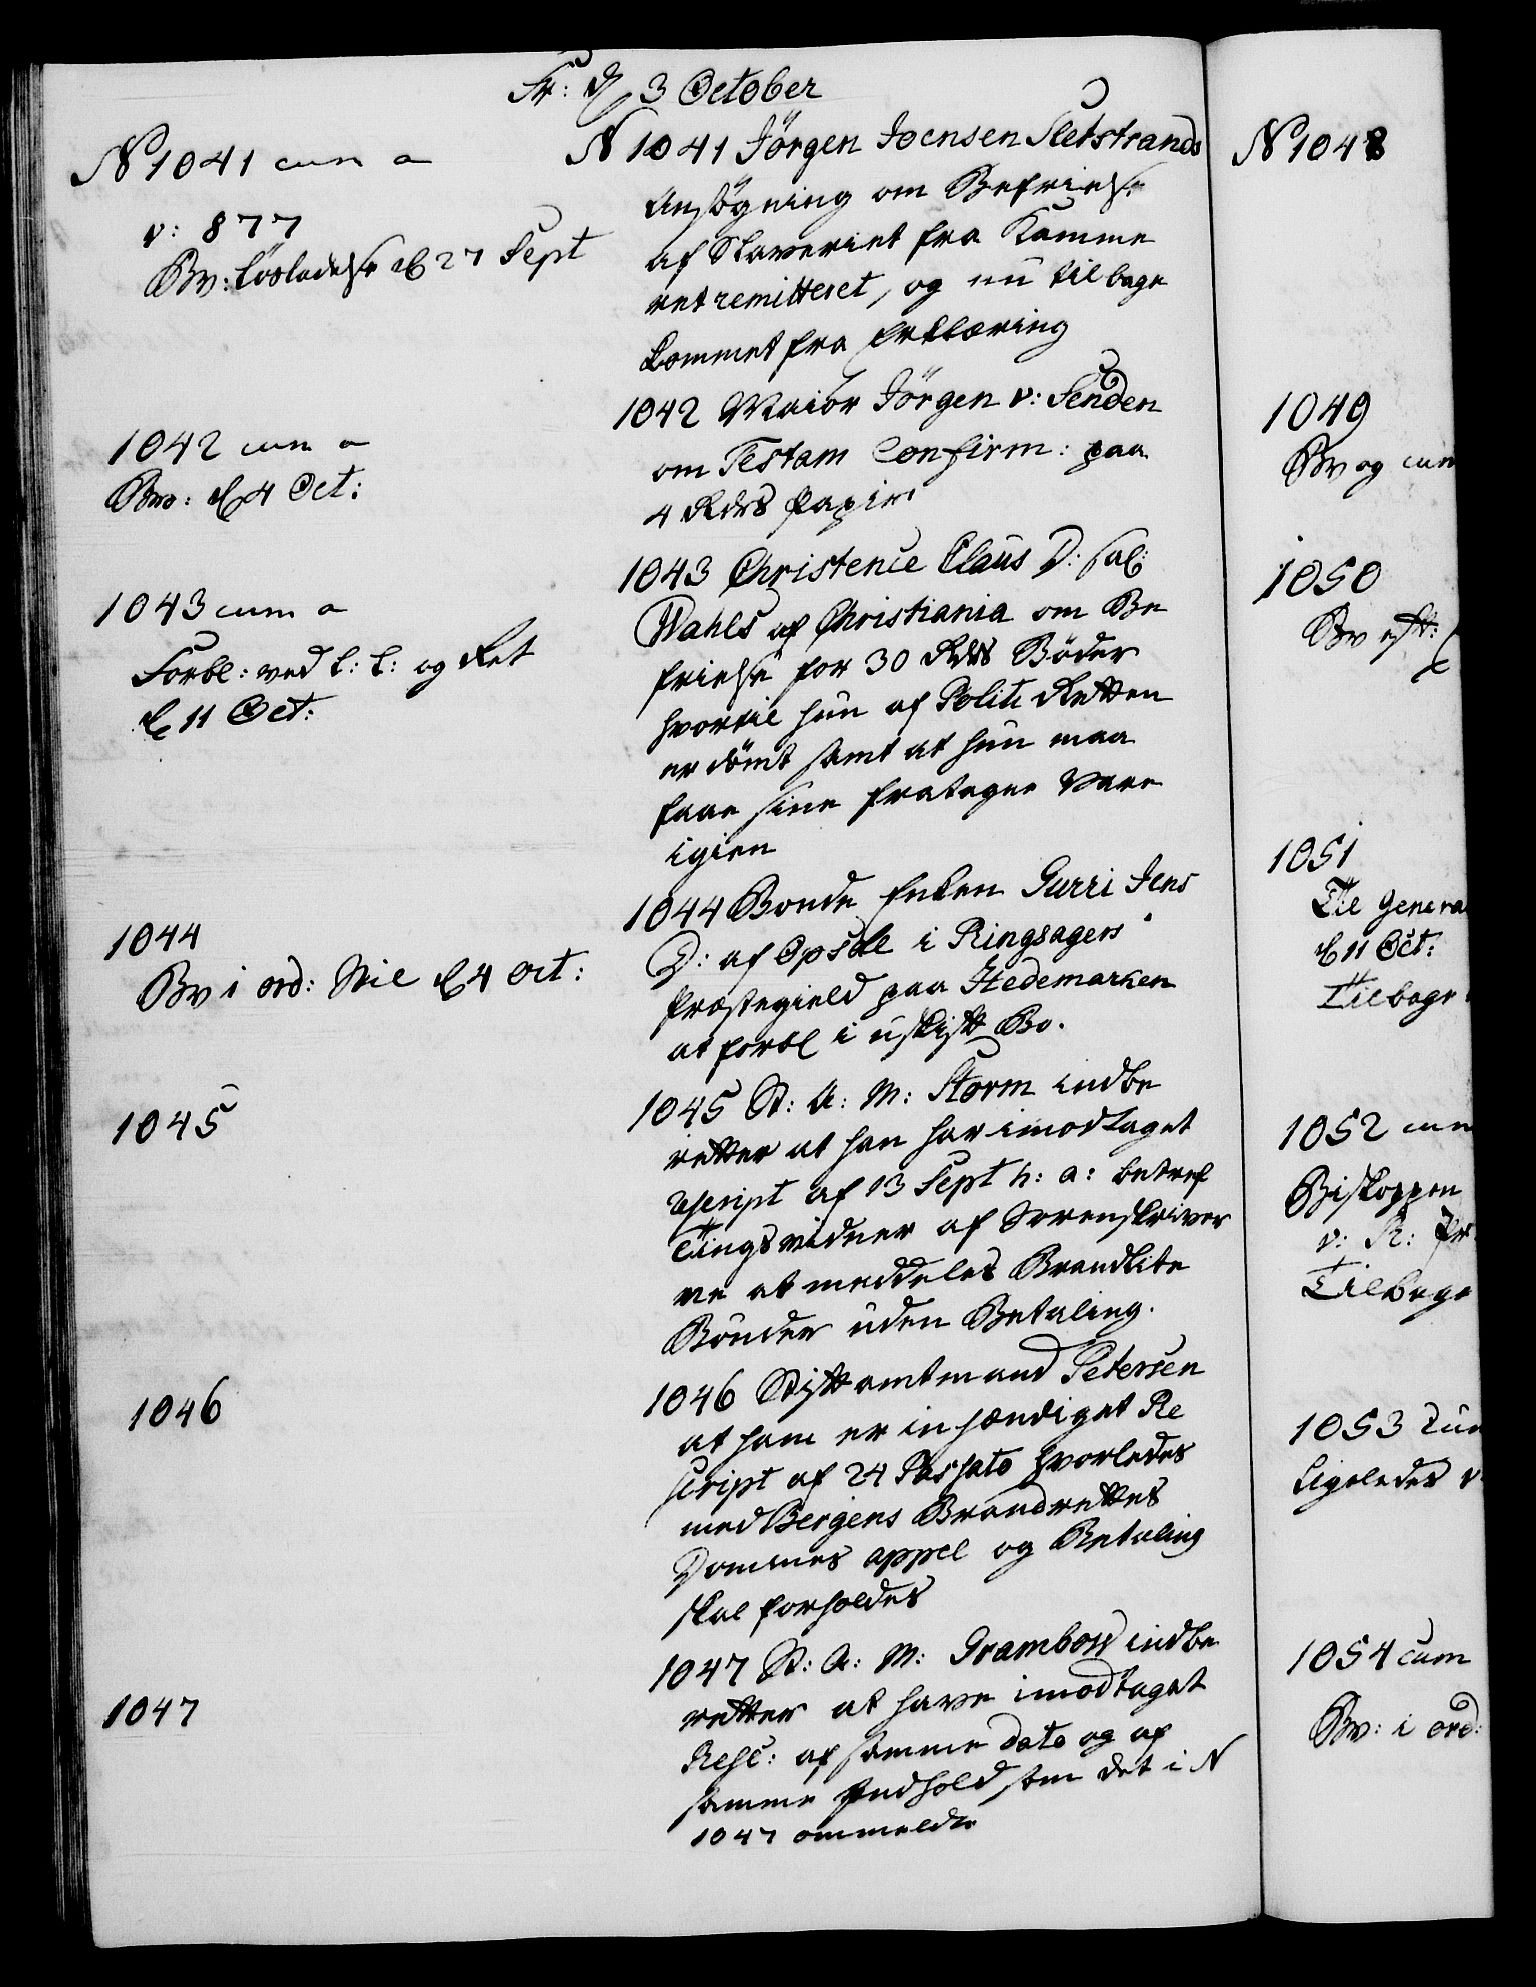 Fr: d 3 October
N 1041 cum a
v: 877
Bv: Løsladelse d 27 Sept
N 1041 Jörgen Joensen Sletstrands
Ansögning om Befrielse
af Slaveriet fra Camme
ret remitteret, og nu tilbage
kommet fra Erklæring
1042 cum a
Bv: d 4 Oct:
1042 Maior Jörgen v: Senden
om Testam Confirm: paa
4 Rdrs Papir
1043 cum a
Forbl: ved L: L: og Ret
d 11 Oct:
1043 Christence Claus D: sal:
Wahls af Christiania om Be
frielse for 30 Rdrs Böder
hvortil hun af Politi Retten
er dömt samt at hun maa
faae sine fratagne Vare
igien
1044
Bv i ord: Stil d 4 Oct:
1044 Bonde Enken Gurri Jens
D: af Opsal i Ringsagers
Præstegield paa Hedemarken
at forbl i uskift Bo.
1045
1045 St: A: M: Storm indbe
retter at han har imodtaget
rescript af 13 Sept h: a: betref
Tingsvidner af Sorenskriver
ne at meddeles Brandlite
Bönder uden Betaling.
1046
1046 Stiftamtmand Petersen
at ham er inhændiget Re
script af 24 Passato hvorledes
med Bergens Brandrettes
Dommes appel og Betaling
skal forholdes
1047
1047 St: A: M: Grambow indbe
retter at have imodtaget
Resc: af samme dato og af
samme Indhold som det i N
1047 ommeldte
N 1048
1049
Bv og cum
1050
Bv eft:
1051
Til Genera
d 11 Oct:
Tilbage
1052 cum
Biskoppen
v: R: Er
Tilbage
1053 Cum
Ligeledes v
1054 cum
Bv: i ord: